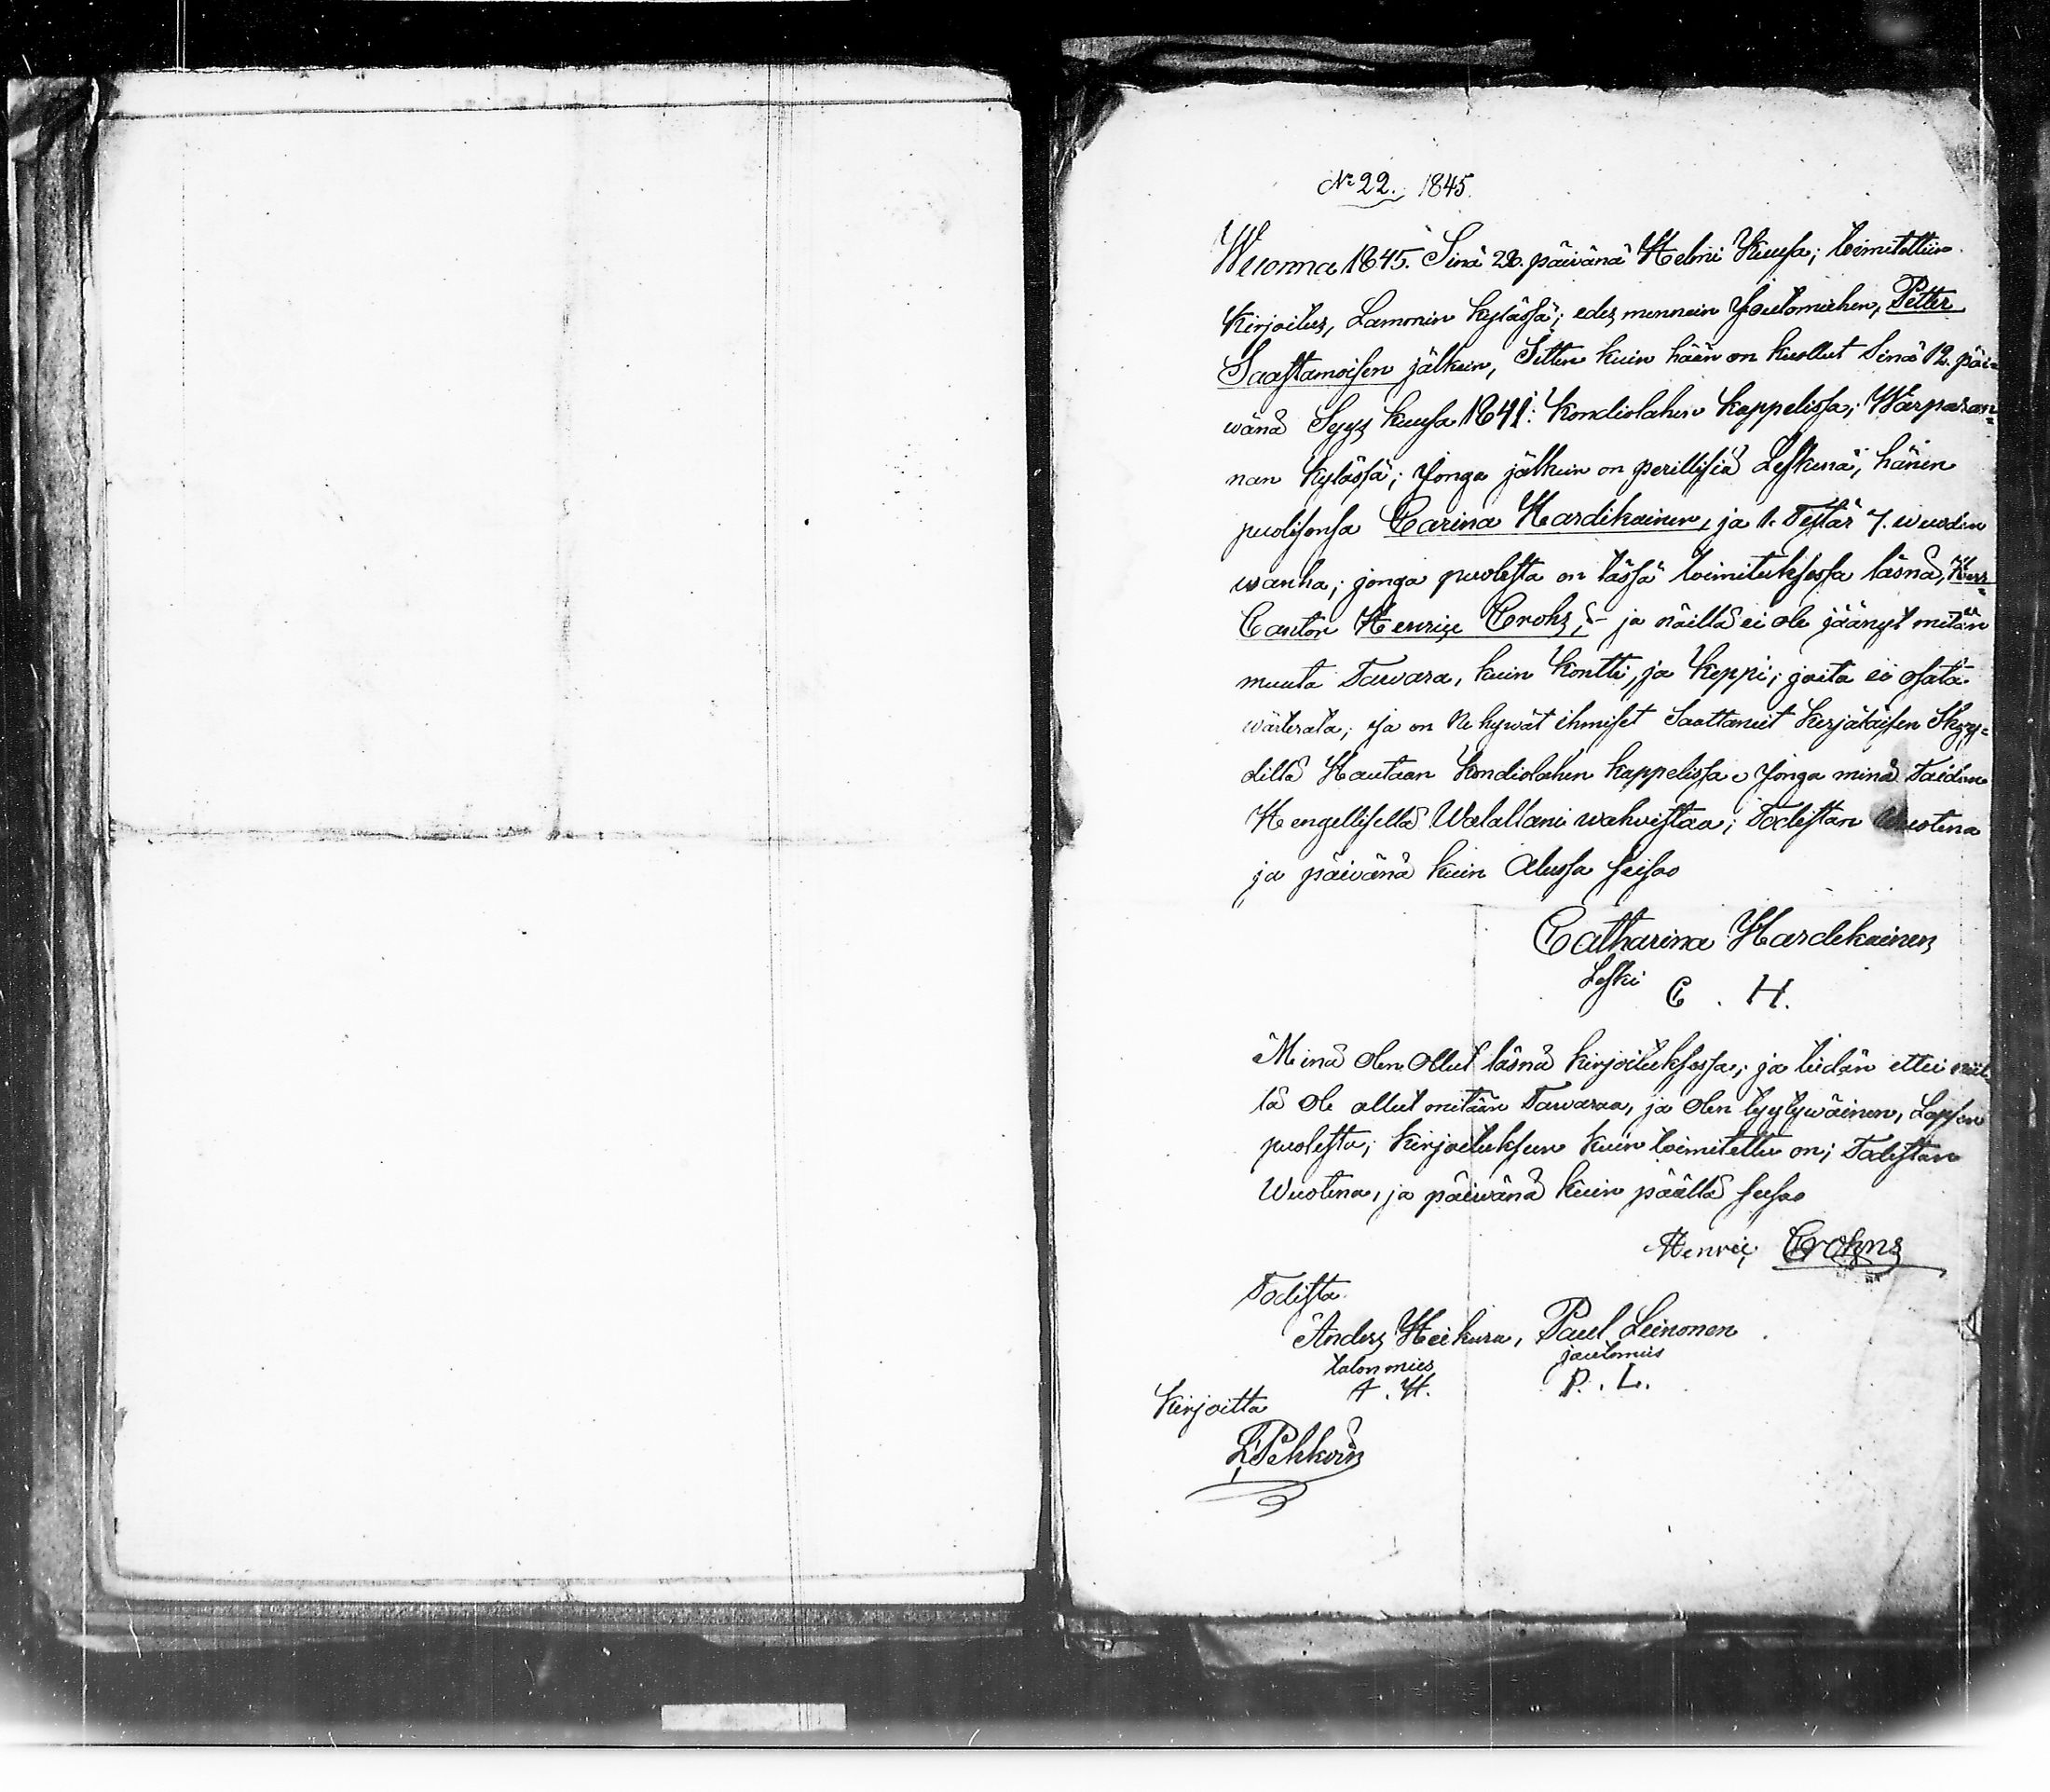 No 22. 1845.
Wuonna 1845. Sinä 28. päivänä Helmi Kuusa; toimitettiin
Kirjoitus, Lammin Kylässä; edes mennein Itselomiehen, Petter
Saastamoisen jälkein, Sitten kuin hään on kuollut Sinä 12. päi-
wänä Syys kuusa 1841: Kondiolahen Kappelissa; Warparan-
nan Kylässä; Jonga jälkein on perillisiä Leskenä; hänen
puolisonsa Carina Hardikainen, ja 1. Tytär 7. wuoden
wanha; jonga puolesta on tässä toimituksessa läsnä, Herr-
Cantor Henric Crohs; - ja näillä ei ole jäänyt mitän
muuta Tawara, kuin Kontti, ja Keppi; joita ei osata
wärterata; ja on Ne hywät ihmiset Saattaneet Kerjäläisen Skyy-
dillä Hautaan Kondiolahen kappelissa Jonga minä Taidan
Hengellisellä Walallani wahvistaa; Todistan Wuotena
ja päivänä kuin Alussa seisoo
Catharina Hardekainen
Leski C. H.
Minä Olen Ollut läsnä Kirjoituksessa; ja tiedän ettei niil-
lä Ole ollut mitään Tawaraa, ja Olen tyytywäinen, Lapsen
puolesta; Kirjoituksen kuin toimitettu on; Todistan
Wuotena, ja päiwänä kuin päällä seisoo
Henric Crohns
Todista
Anders Heikura, Paul Leinonen
talon mies jautomies
A. H. P. L.
Kirjoitta